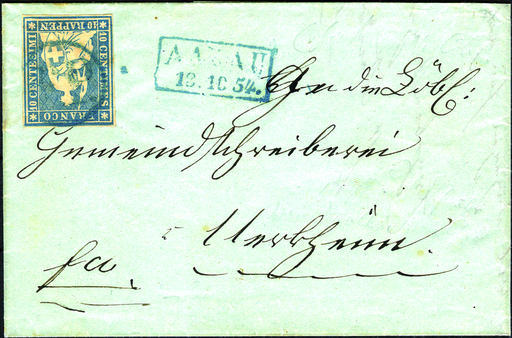 10 RAPPEN
10 CENTIMES
FRANCO
10 CENTESIMI
AARAU
18.10 54.
An die Löbl:
Gemeindschreiberei
Uerkheim.
fco.